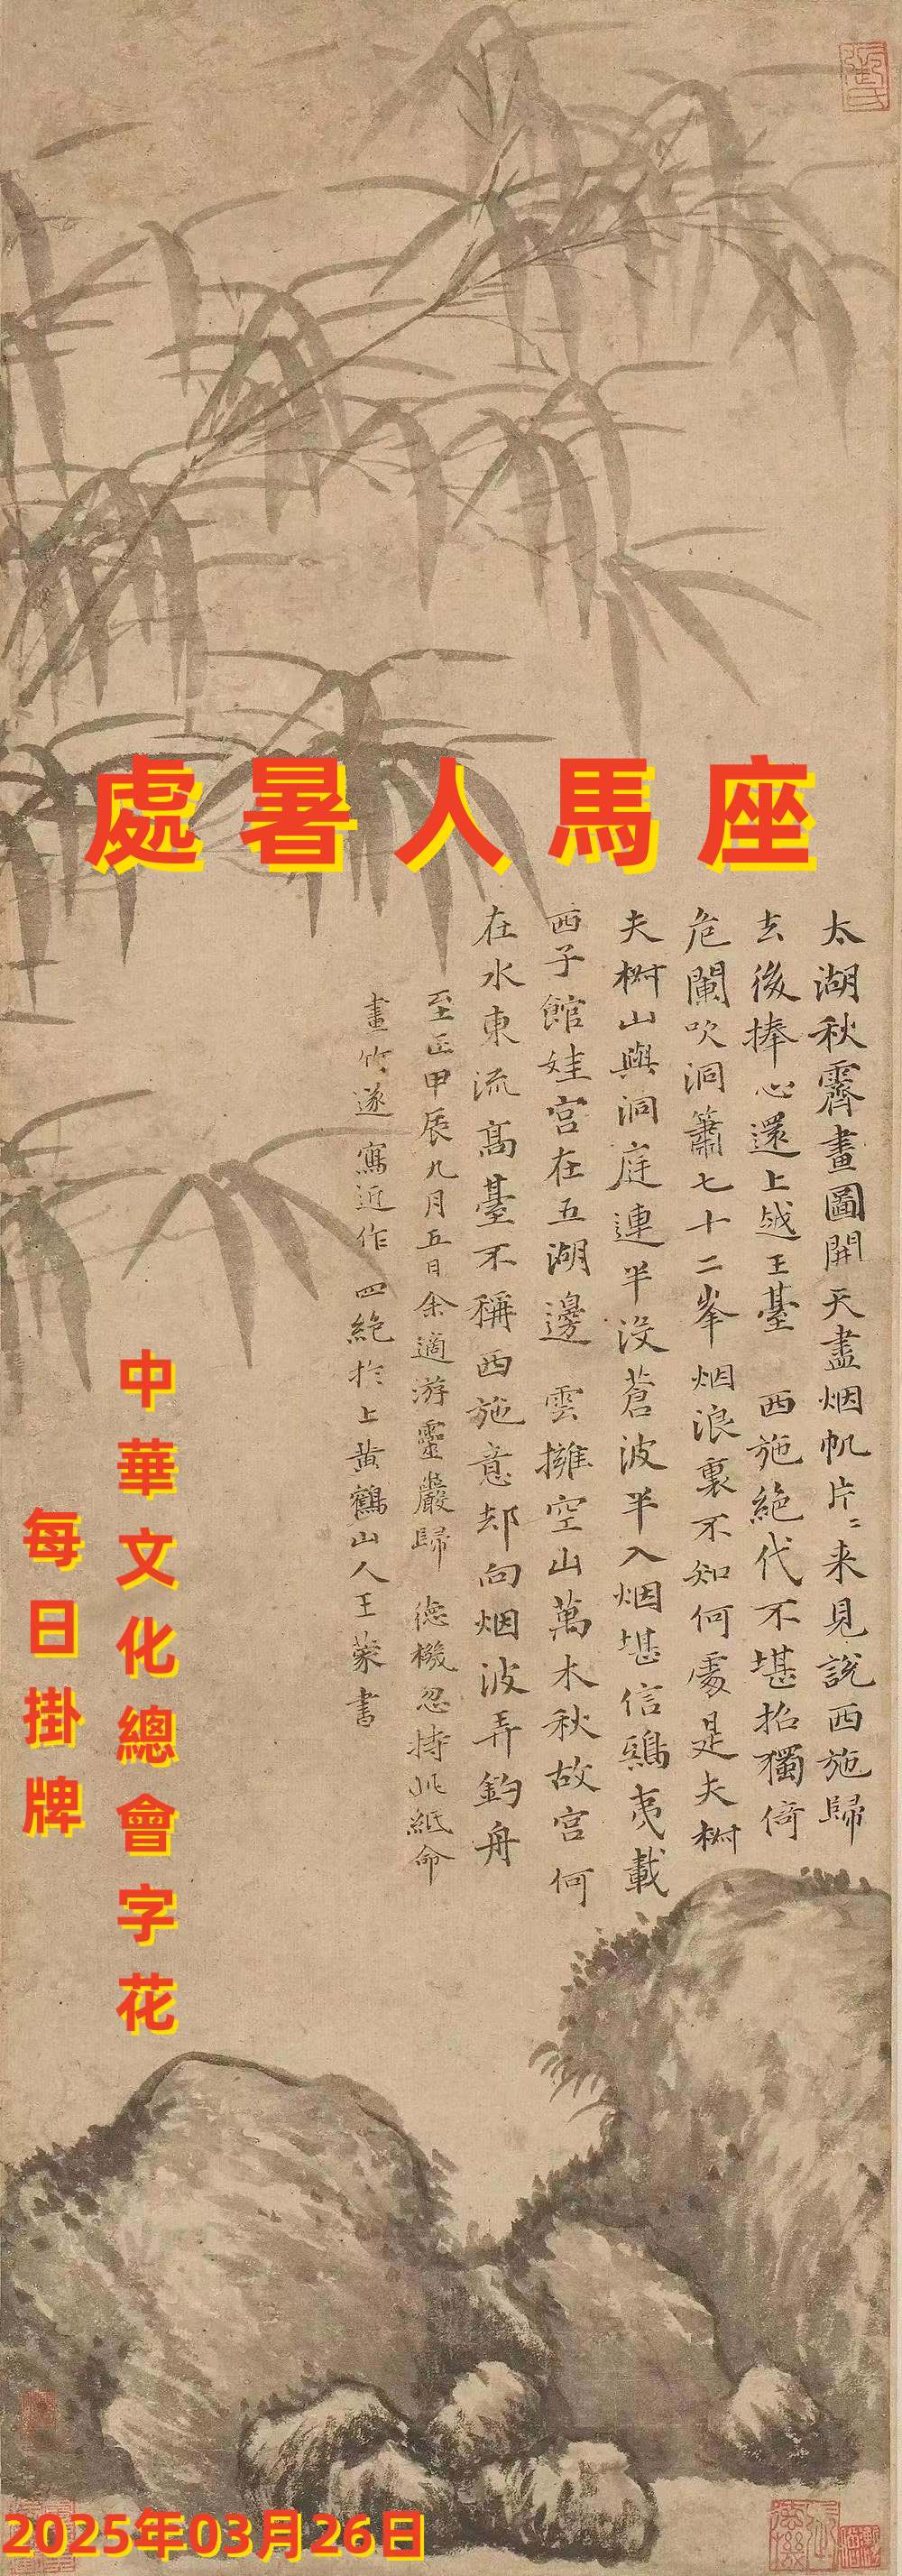 處暑人馬座
太湖秋霽畫圖開天盡烟帆片〻来見說西施歸
去後捧心還上越王臺 西施絶代不堪招獨倚
危闌吹洞簫七十二峯烟浪裏不知何處是夫椒
夫椒山與洞庭連半没蒼波半入烟堪信鴟夷載
西子館娃宫在五湖邊 雲擁空山萬木秋故宫何
在水東流髙臺不稱西施意却向烟波弄釣舟
至正甲辰九月五日余適游靈巖歸 德機忽持此紙命
畫竹遂寫近作四絶於上黄鶴山人王蒙書
中華文化總會字花
每日掛牌
2025年03月26日